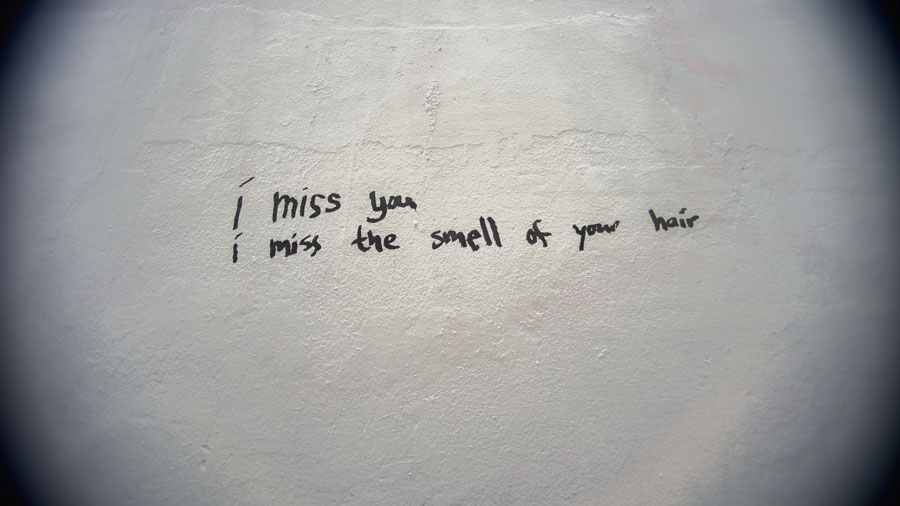 i miss you
i miss the smell of your hair